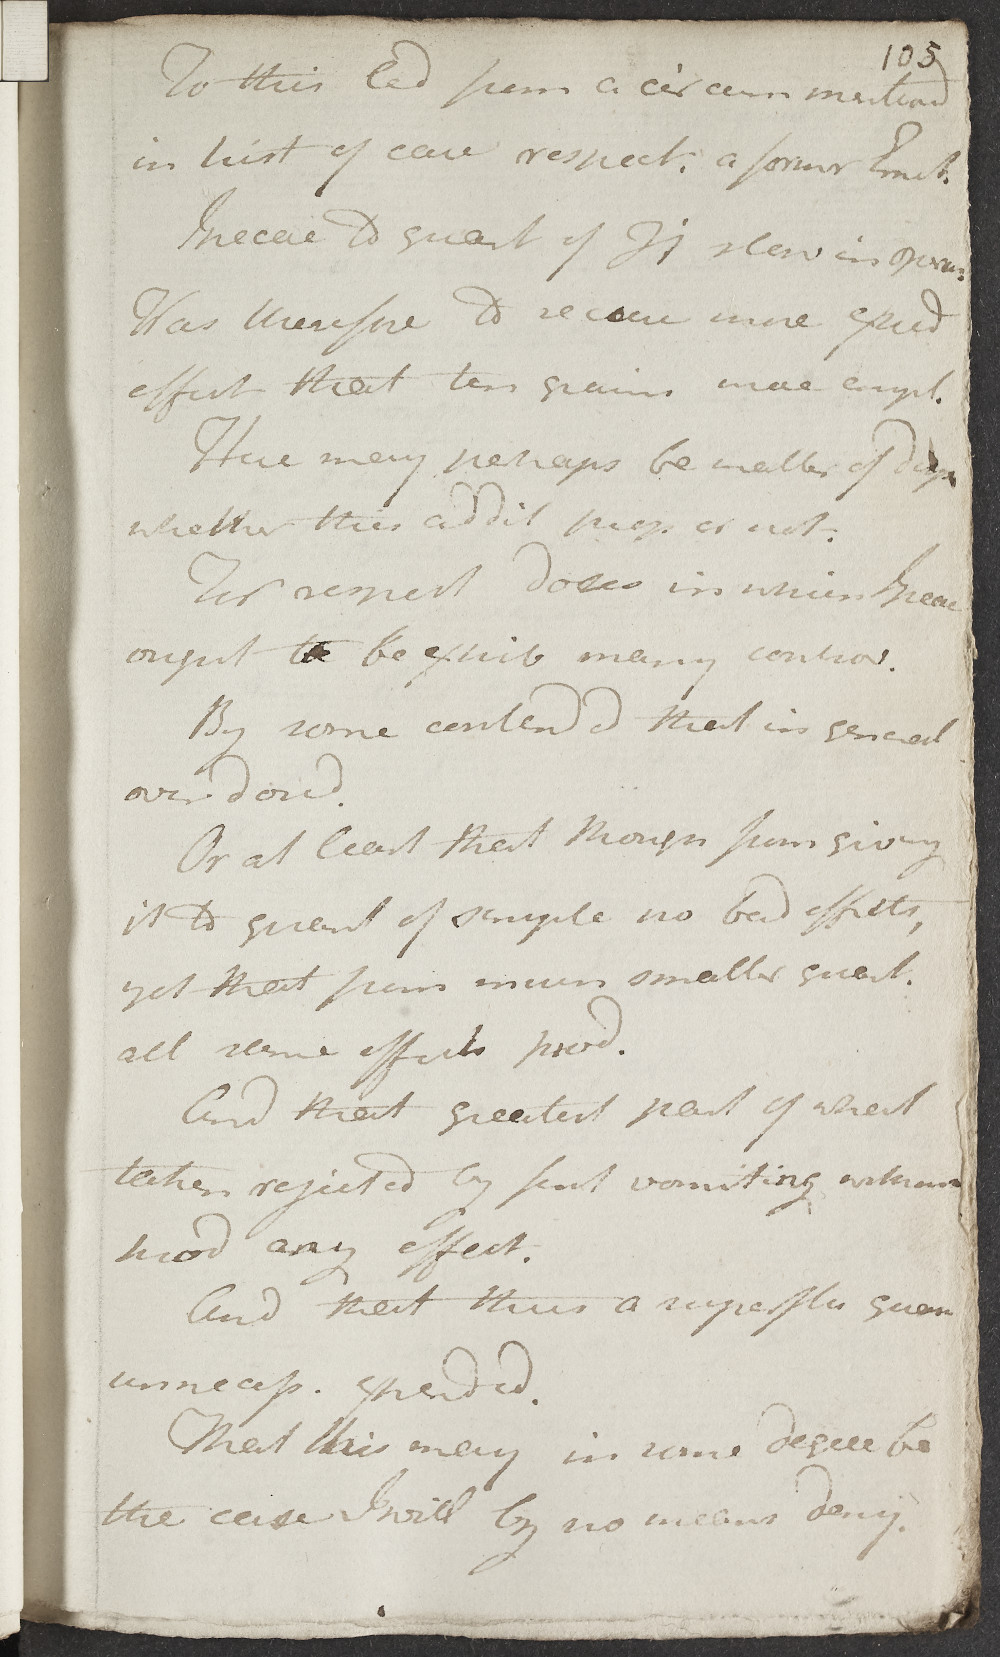 105
To this led from a circum mentiond
in hist of case respect. a former Emet.
Ipecac to quant of ℈j slow in operan:
Was therefore to secure more speed
effect that ten grains more empl.
Here may perhaps be matter of disp
whether this addit prop. or not.
For respect doses in which Ipecac
ought to be exhib many controv.
By some contend'd that in general
over dosed.
Or at least that though from giving
it to quant of scruple no bad effects,
yet that from much smaller quant.
all same effects prod.
And that greatest part of what
taken rejected by first vomiting without
prod any effect.
And that thus a superflu quan
unnecess. expended.
That this may in some degree be
the case I will by no means deny.